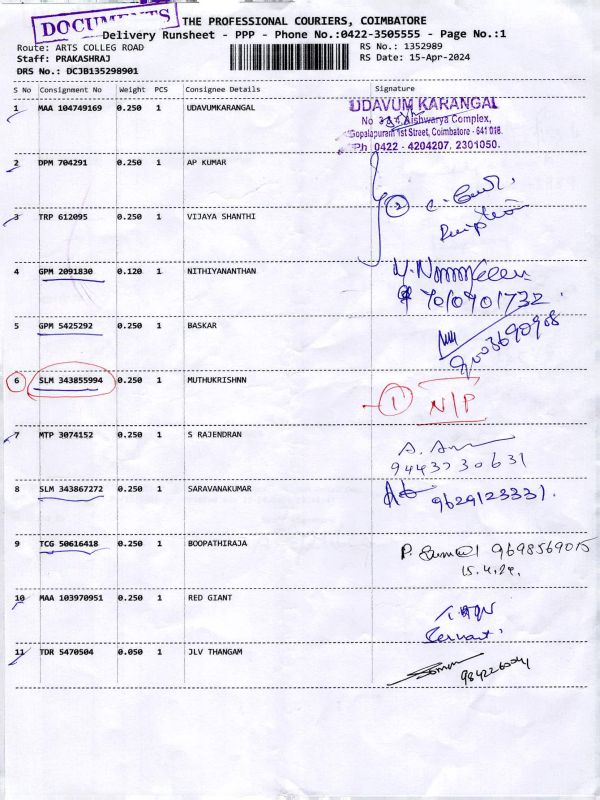 DOCUMENTS
THE PROFESSIONAL COURIERS, COIMBATORE
Delivery Runsheet - PPP - Phone No.:0422-3505555 - Page No.:1
Route: ARTS COLLEG ROAD
Staff: PRAKASHRAJ
DRS No.: DCJB135298901
RS No.: 1352989
RS Date: 15-Apr-2024
S No Consignment No Weight PCS Consignee Details Signature
1 MAA 104749169 0.250 1 UDAVUMKARANGAL
UDAVUM KARANGAL
No 3 & 4 Aishwarya Complex,
Gopalapuram 1st Street, Coimbatore - 641 018.
Ph 0422 - 4204207, 2301050.
2 DPM 704291 0.250 1 AP KUMAR
2
3 TRP 612095 0.250 1 VIJAYA SHANTHI
4 GPM 2091830 0.120 1 NITHIYANANTHAN
7010901732
5 GPM 5425292 0.250 1 BASKAR
9003690908
6 SLM 343855994 0.250 1 MUTHUKRISHNN
1 N/P
7 MTP 3074152 0.250 1 S RAJENDRAN
9443730631
8 SLM 343867272 0.250 1 SARAVANAKUMAR
9629123331.
9 TCG 50616418 0.250 1 BOOPATHIRAJA
9698569015
15.4.24.
10 MAA 103970951 0.250 1 RED GIANT
11 TDR 5470504 0.050 1 JLV THANGAM